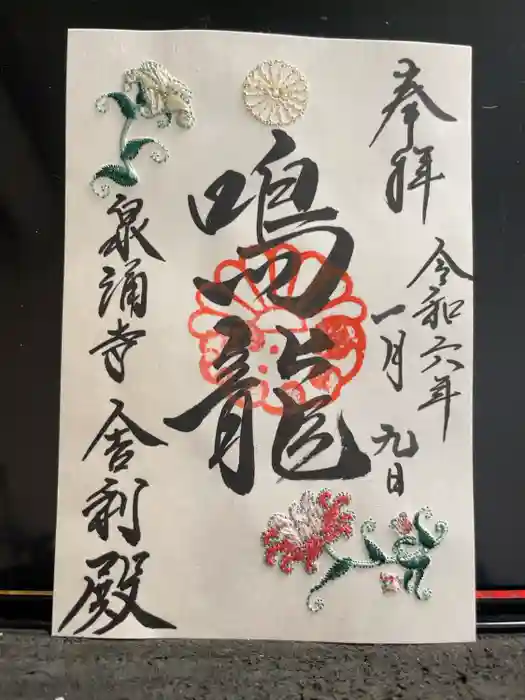 奉拝
令和六年
一月九日
鳴龍
泉涌寺 舎利殿